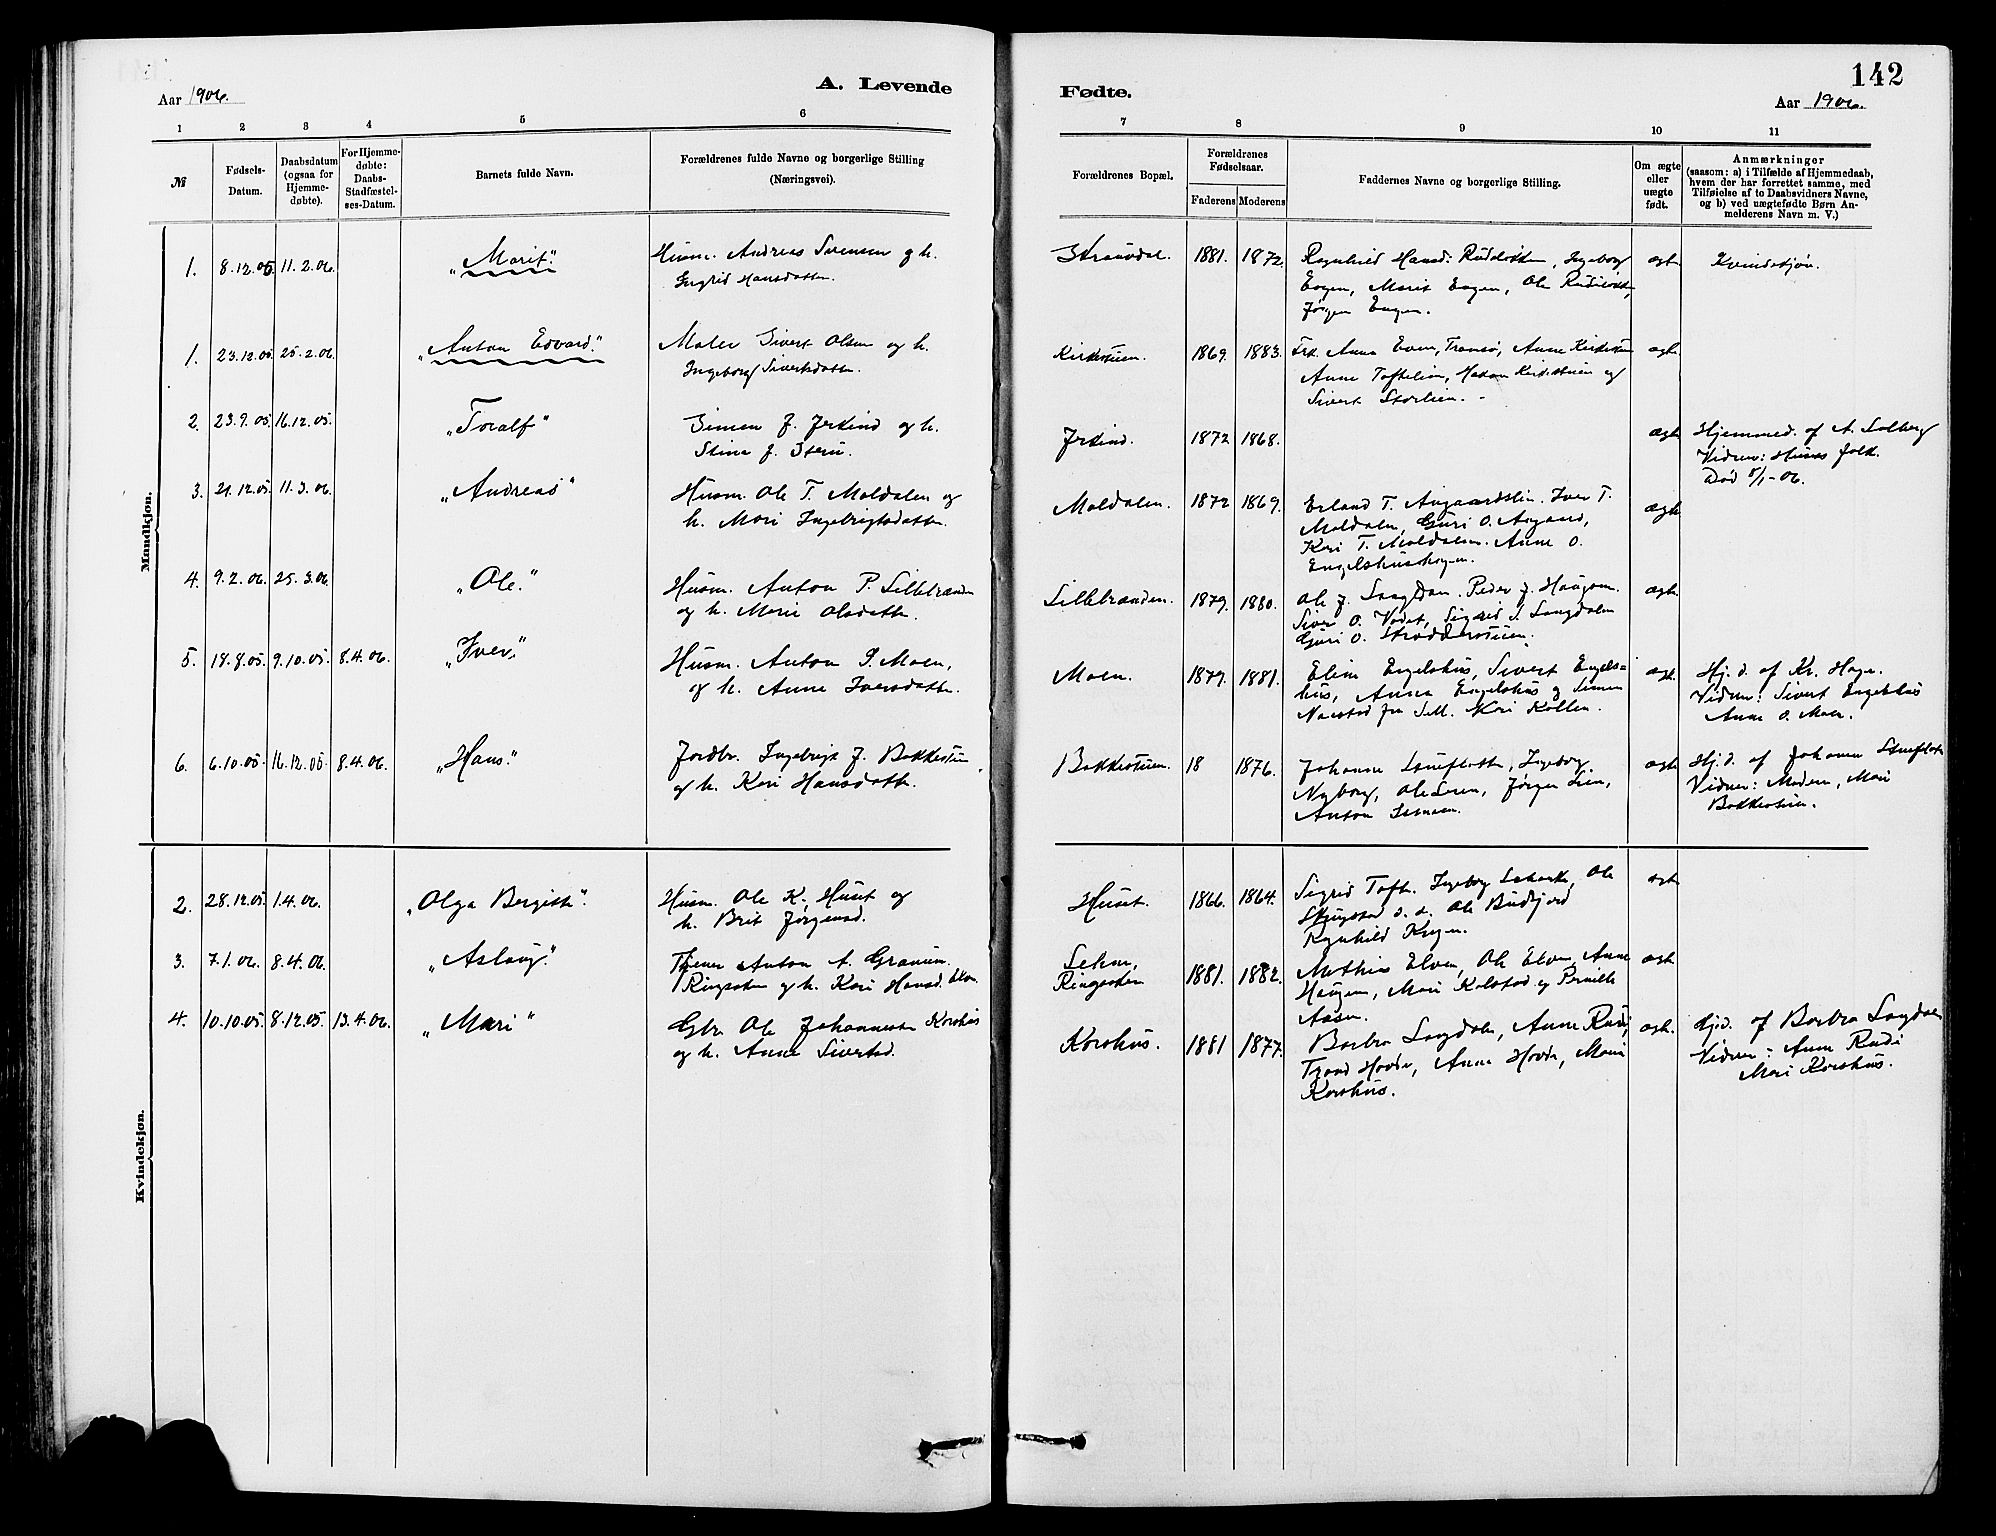 142
Aar 1906.
A. Levende
Fødte.
Aar 1906.
1 2 3 4 5 6 7 8 9 10 11
№
Fødsels-Datum.
Daabsdatum (ogsaa for Hjemme-døbte).
For Hjemme-døbte: Daabs-Stadfæstel-ses-Datum.
Barnets fulde Navn.
Forældrenes fulde Navne og borgerlige Stilling
(Næringsvei).
Forældrenes Bopæl.
Forældrenes Fødselsaar.
Faderens Moderens
Faddernes Navne og borgerlige Stilling.
Om ægte eller uægte født.
Anmærkninger
(saasom: a) i Tilfælde af Hjemmedaab,
hvem der har forrettet samme, med
Tilføielse af to Daabsvidners Navne,
og b) ved uægtefødte Børn An-
melderens Navn m. V.)
Mandkjøn.
1. 8.12.05 11.2.06. "Marit." Husm. Andreas Sørensen og h.
Ingrid Hansdatter.
1881. 1872. Ragnhild Hansd. Rudiløkken, Ingeborg
Engen, Marit Engen, Ole Rudiløkken,
Jørgen Engen.
ægte Kvindekjøn.
1. 23.12.05 25.2.06. "Anton Edvard." Maler Sivert Olsen og h.
Ingeborg Sivertsdatter.
Kirkestuen. 1869. 1883. Frk. Anna Even, Tromsø, Anne Kirkestuen
Anne Toftelien, Kirkestuen og
Sivert Storlien.
ægte
2. 23.9.05 16.12.05. "Toralf" Simen J. Jerkind og h.
Stina J.
Jerkind. 1872 1868. ægte Hjemmed. af A. Solberg
Vidner: Husets folk.
Død 8/1-06.
3. 21.12.05. 11.3.06. "Andreas" Husm. Ole T. Moldalen og
h. Mari Ingebrigtsdatter.
Moldalen. 1872 1869. Erland T. Angaardslien. Iver T.
Moldalen, Guri O. Angaard,
Kari T. Moldalen. Anne O.
Engelshushagen.
ægte
4. 9.2.06. 25.3.06. "Ole." Husm. Anton P. Lillebrænden
og h. Marie Olsdatter.
Lillebrænden. 1879. 1880. Ole J. Langdalen. Peder J. Haugen.
O. Sigrid S. Langdalen
Guri O.
ægte
5. 18.8.05. 9.10.05. 8.4.06. "Iver." Husm. Anton P. Moen,
og h. Anne Iversdatter.
Moen. 1879. 1881. Engelshus, Sivert Engels-
hus, Anna Engelshus og Simen
Naustad fra Sell. Kari Kollen.
ægte Hj.d. af Kr. Hage.
Vidner: Sivert Engelshus
Anne O. Moen.
6. 6.10.05. 16.12.05. 8.4.06. "Hans." Jordbr. Ingebrigt J. Bakkestuen,
og h. Kari Hansdatter.
Bakkestuen. 18 1876. Johanne Ingeborg
Nyborg, Ole Jørgen Lien,
Anton
ægte Hj.d. af Johanne
Vidner: Moderen, Mari
Bakkestuen.
Kvindekjøn.
2. 28.12.05. 1.4.06. "Olga Bergitte." Husm. Ole K. Huset og
h. Brit Jørgensd.
Huset. 1866. 1864. Sigrid Tofte. Ingeborg Ole
Ole
Ragnhild
ægte
3. 7.1.06. 8.4.06. "Aslaug." Tjener Anton A.
Ringsaker og h. Kari Hansd.
Ringsaker 1881. 1882. Mathias Elven, Ole Elven, Anne
Haugen, Mari Kolstad og Pernille
Aasen.
ægte
4. 10.10.05. 8.12.05. 13.4.06. "Mari" Gbr. Ole Johannesen Korshus
og h. Anne Sivertsd.
Korshus. 1881 1877. Barbra Langdalen, Anne Rudi,
Hovde, Anne Hovde, Mari
Korshus.
ægte. Hjd. af Barbra Langdalen
Vidner: Anne Rudi
Mari Korshus.